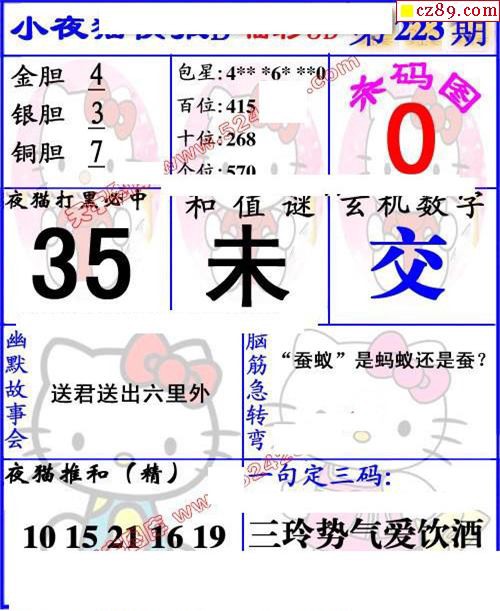 cz89.com
小夜猫
第223期
金胆 4
银胆 3
铜胆 7
包星:4** *6* **0
百位:415
十位:268
个位:570
杀码图
0
夜猫打黑必中
35
和值谜
未
玄机数字
交
幽默故事会
送君送出六里外
脑筋急转弯
“蚕蚁”是蚂蚁还是蚕?
夜猫推和(精)
10 15 21 16 19
一句定三码:
三玲势气爱饮酒